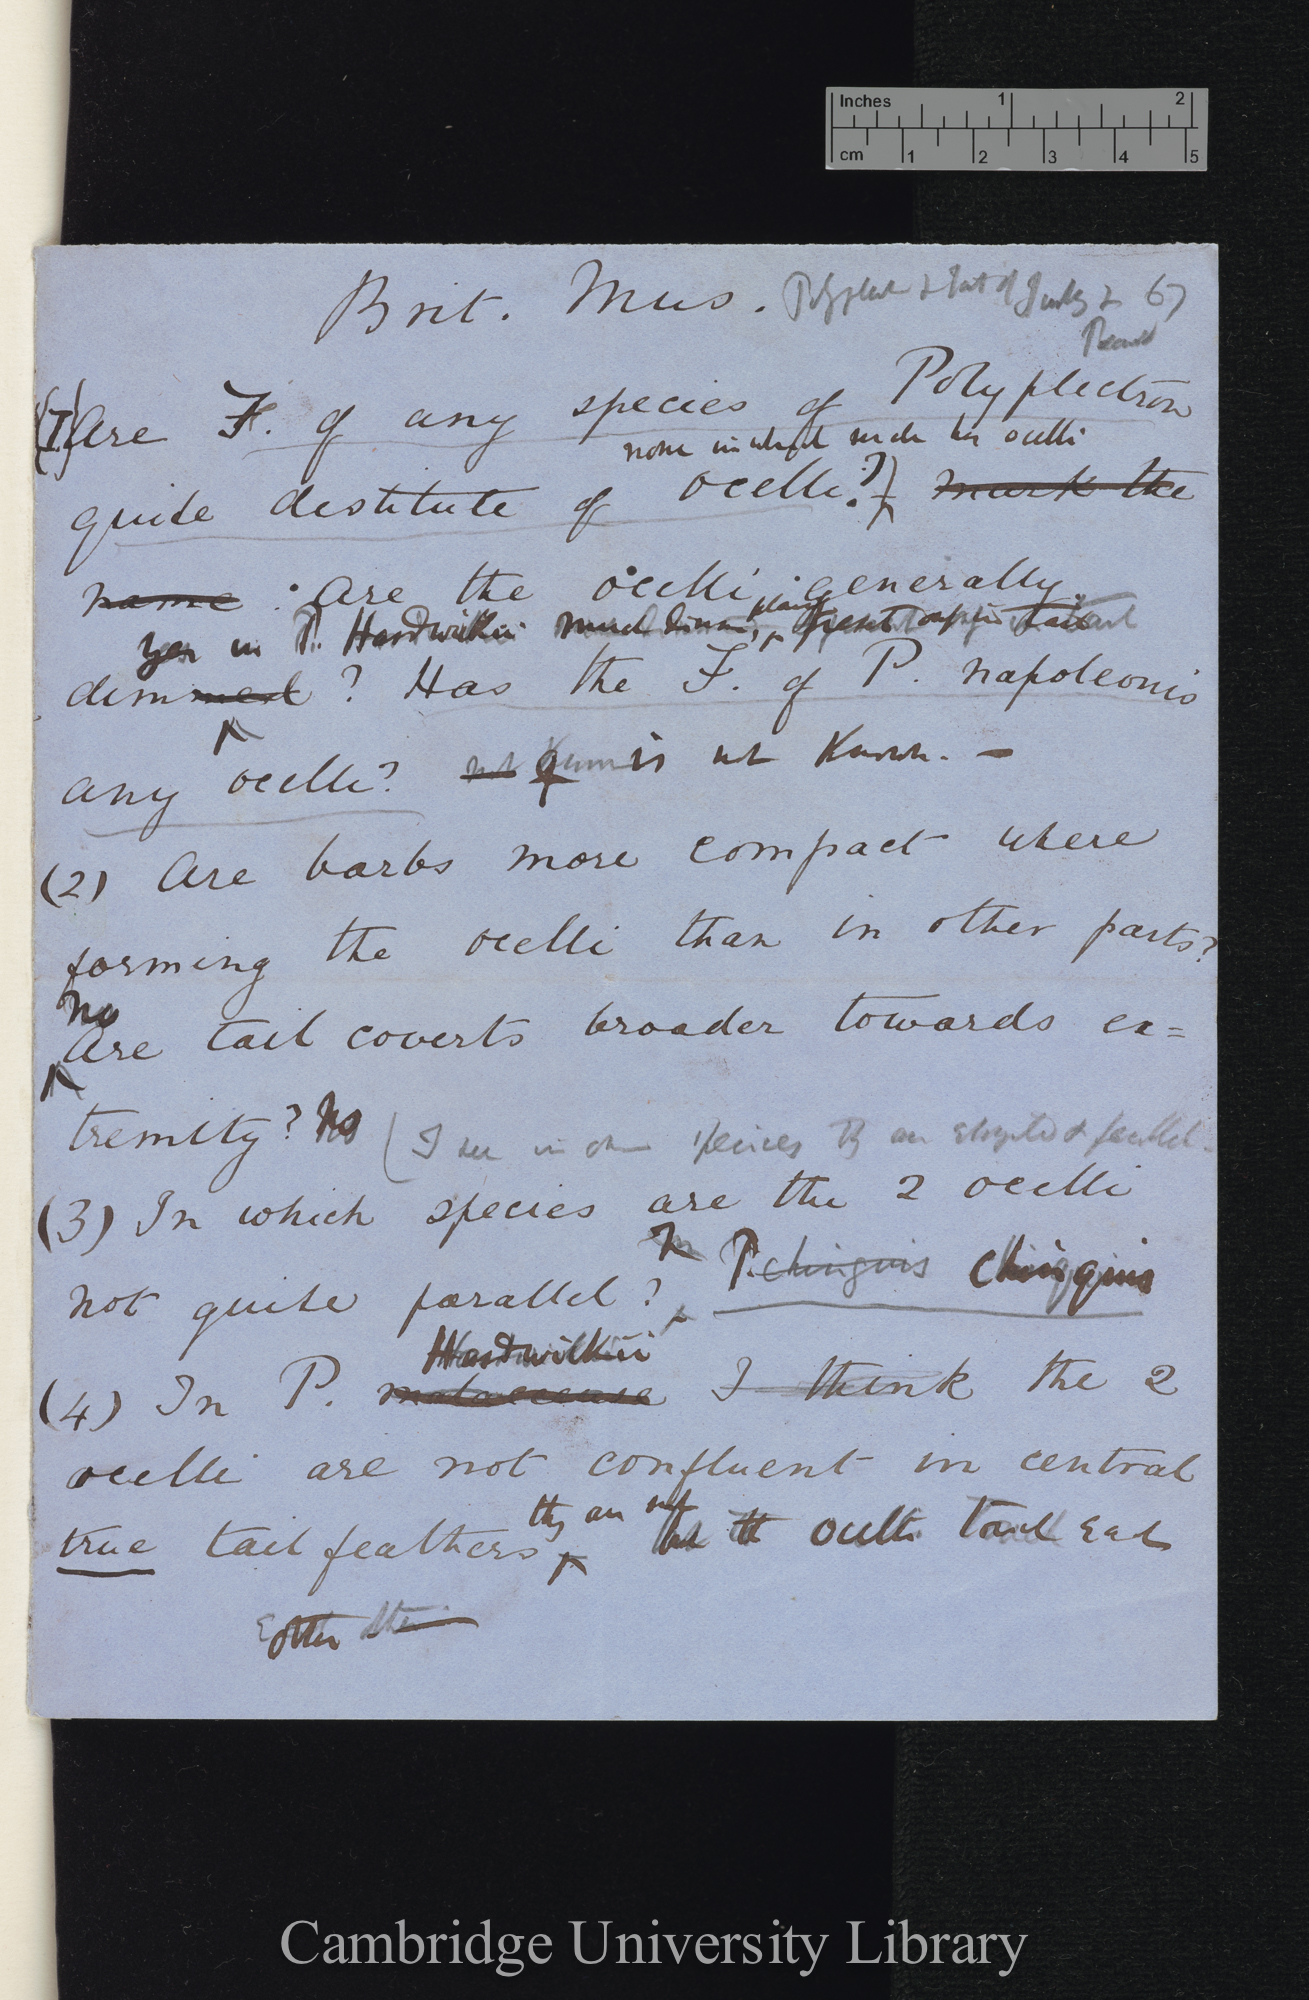 Inches 1 2
cm 1 2 3 4 5
Brit. Mus.
67
(1) Are F. of any species of Polyplectron
none in which male has ocelli
quite destitute of ocelli? mark the
name : Are the ocelli generally
yes in P. Hardwickii much dimmer, plainer
tail
dimmed? Has the F. of P. napoleonis
any ocelli? not ♀ is not Known. —
(2) Are barbs more compact where
forming the ocelli than in other parts?
No
Are tail coverts broader towards ex=
tremity? No (I see in one species they are elongated & parallel.
(3) In which species are the 2 ocelli
not quite parallel? In P. chinquis chinquis
Hardwickii
(4) In P. malaccense I think the 2
ocelli are not confluent in central
they are not
true tail feathers but the ocelli touch each
other